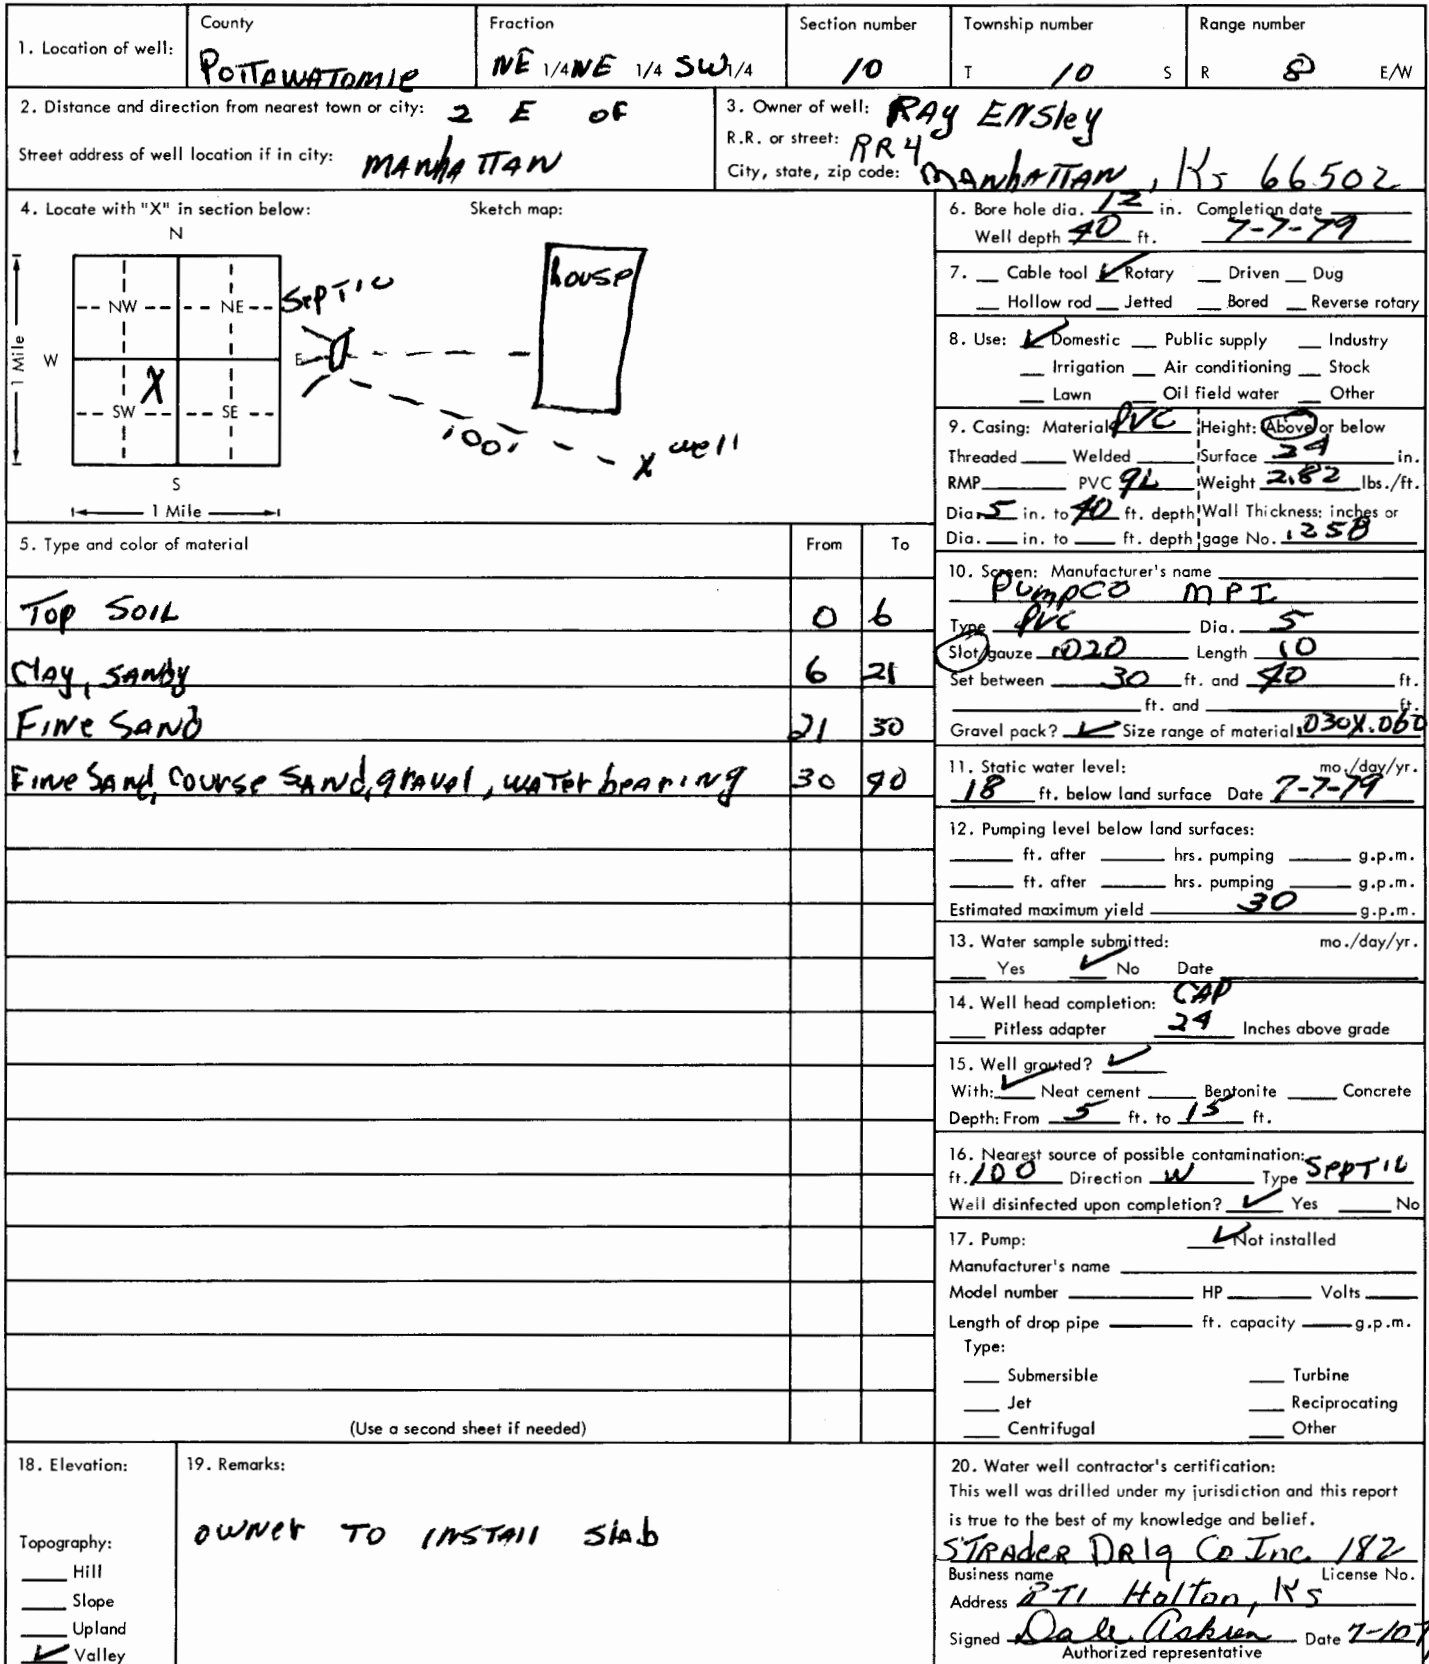 1. Location of well: County Fraction Section number Township number Range number
POTTAWATOMIE NE 1/4 NE 1/4 SW 1/4 10 T 10 S R 8 E/W
2. Distance and direction from nearest town or city: 2 E OF
Street address of well location if in city: MANHATTAN
3. Owner of well: RAY ENSley
R.R. or street: RR 4
City, state, zip code: MANHATTAN, Ks 66502
4. Locate with "X" in section below: Sketch map:
N
NW NE
W E
SW SE
X
S
1 Mile
1 Mile
SEPTIC
house
100'
X well
5. Type and color of material From To
TOP SOIL 0 6
Clay, SANDY 6 21
FINE SAND 21 30
Fine Sand, Course SAND, gravel, water bearing 30 40
(Use a second sheet if needed)
6. Bore hole dia. 12 in. Completion date
Well depth 40 ft. 7-7-79
7. Cable tool ✓ Rotary Driven Dug
Hollow rod Jetted Bored Reverse rotary
8. Use: ✓ Domestic Public supply Industry
Irrigation Air conditioning Stock
Lawn Oil field water Other
9. Casing: Material PVC Height: Above or below
Threaded Welded Surface 24 in.
RMP PVC GL Weight 2.82 lbs./ft.
Dia. 5 in. to 40 ft. depth Wall Thickness: inches or
Dia. in. to ft. depth gage No. .258
10. Screen: Manufacturer's name
PUMPCO MPI
Type PVC Dia. 5
Slot/gauze .020 Length 10
Set between 30 ft. and 40 ft.
ft. and ft.
Gravel pack? ✓ Size range of material .030X.060
11. Static water level: mo./day/yr.
18 ft. below land surface Date 7-7-79
12. Pumping level below land surfaces:
ft. after hrs. pumping g.p.m.
ft. after hrs. pumping g.p.m.
Estimated maximum yield 30 g.p.m.
13. Water sample submitted: mo./day/yr.
Yes ✓ No Date
14. Well head completion: CAP
Pitless adapter 24 Inches above grade
15. Well grouted? ✓
With: ✓ Neat cement Bentonite Concrete
Depth: From 5 ft. to 15 ft.
16. Nearest source of possible contamination:
ft. 100 Direction W Type SEPTIC
Well disinfected upon completion? ✓ Yes No
17. Pump: ✓ Not installed
Manufacturer's name
Model number HP Volts
Length of drop pipe ft. capacity g.p.m.
Type:
Submersible Turbine
Jet Reciprocating
Centrifugal Other
18. Elevation:
Topography:
Hill
Slope
Upland
✓ Valley
19. Remarks:
OWNER TO INSTALL Slab
20. Water well contractor's certification:
This well was drilled under my jurisdiction and this report
is true to the best of my knowledge and belief.
STRADER DRLG Co Inc. 182
Business name License No.
Address RT1 Holton, Ks
Signed Dale Askren Date 7-10
Authorized representative